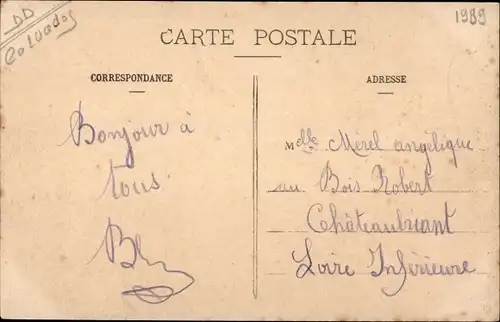 DD
Calvados
1989
CARTE POSTALE
CORRESPONDANCE
ADRESSE
Bonjour à
tous.
Melle Merel angélique
au Bois Robert
Châteaubriant
Loire Inférieure